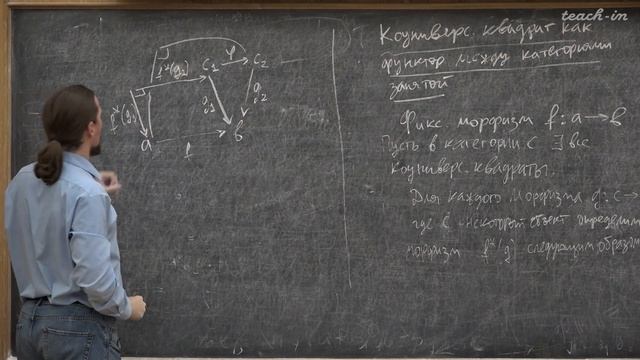 teach-in
Коуниверс. квадрат как
функтор между категориями
запятой
Фикс морфизм f: a → b
Пусть в категории C ∃ все
коуниверс. квадраты.
Для каждого морфизма g: c →
где c - некоторый объект определим
морфизм f*(g) следующим образом
f*(g₂) c₁ φ c₂
g₁ g₂
a f b